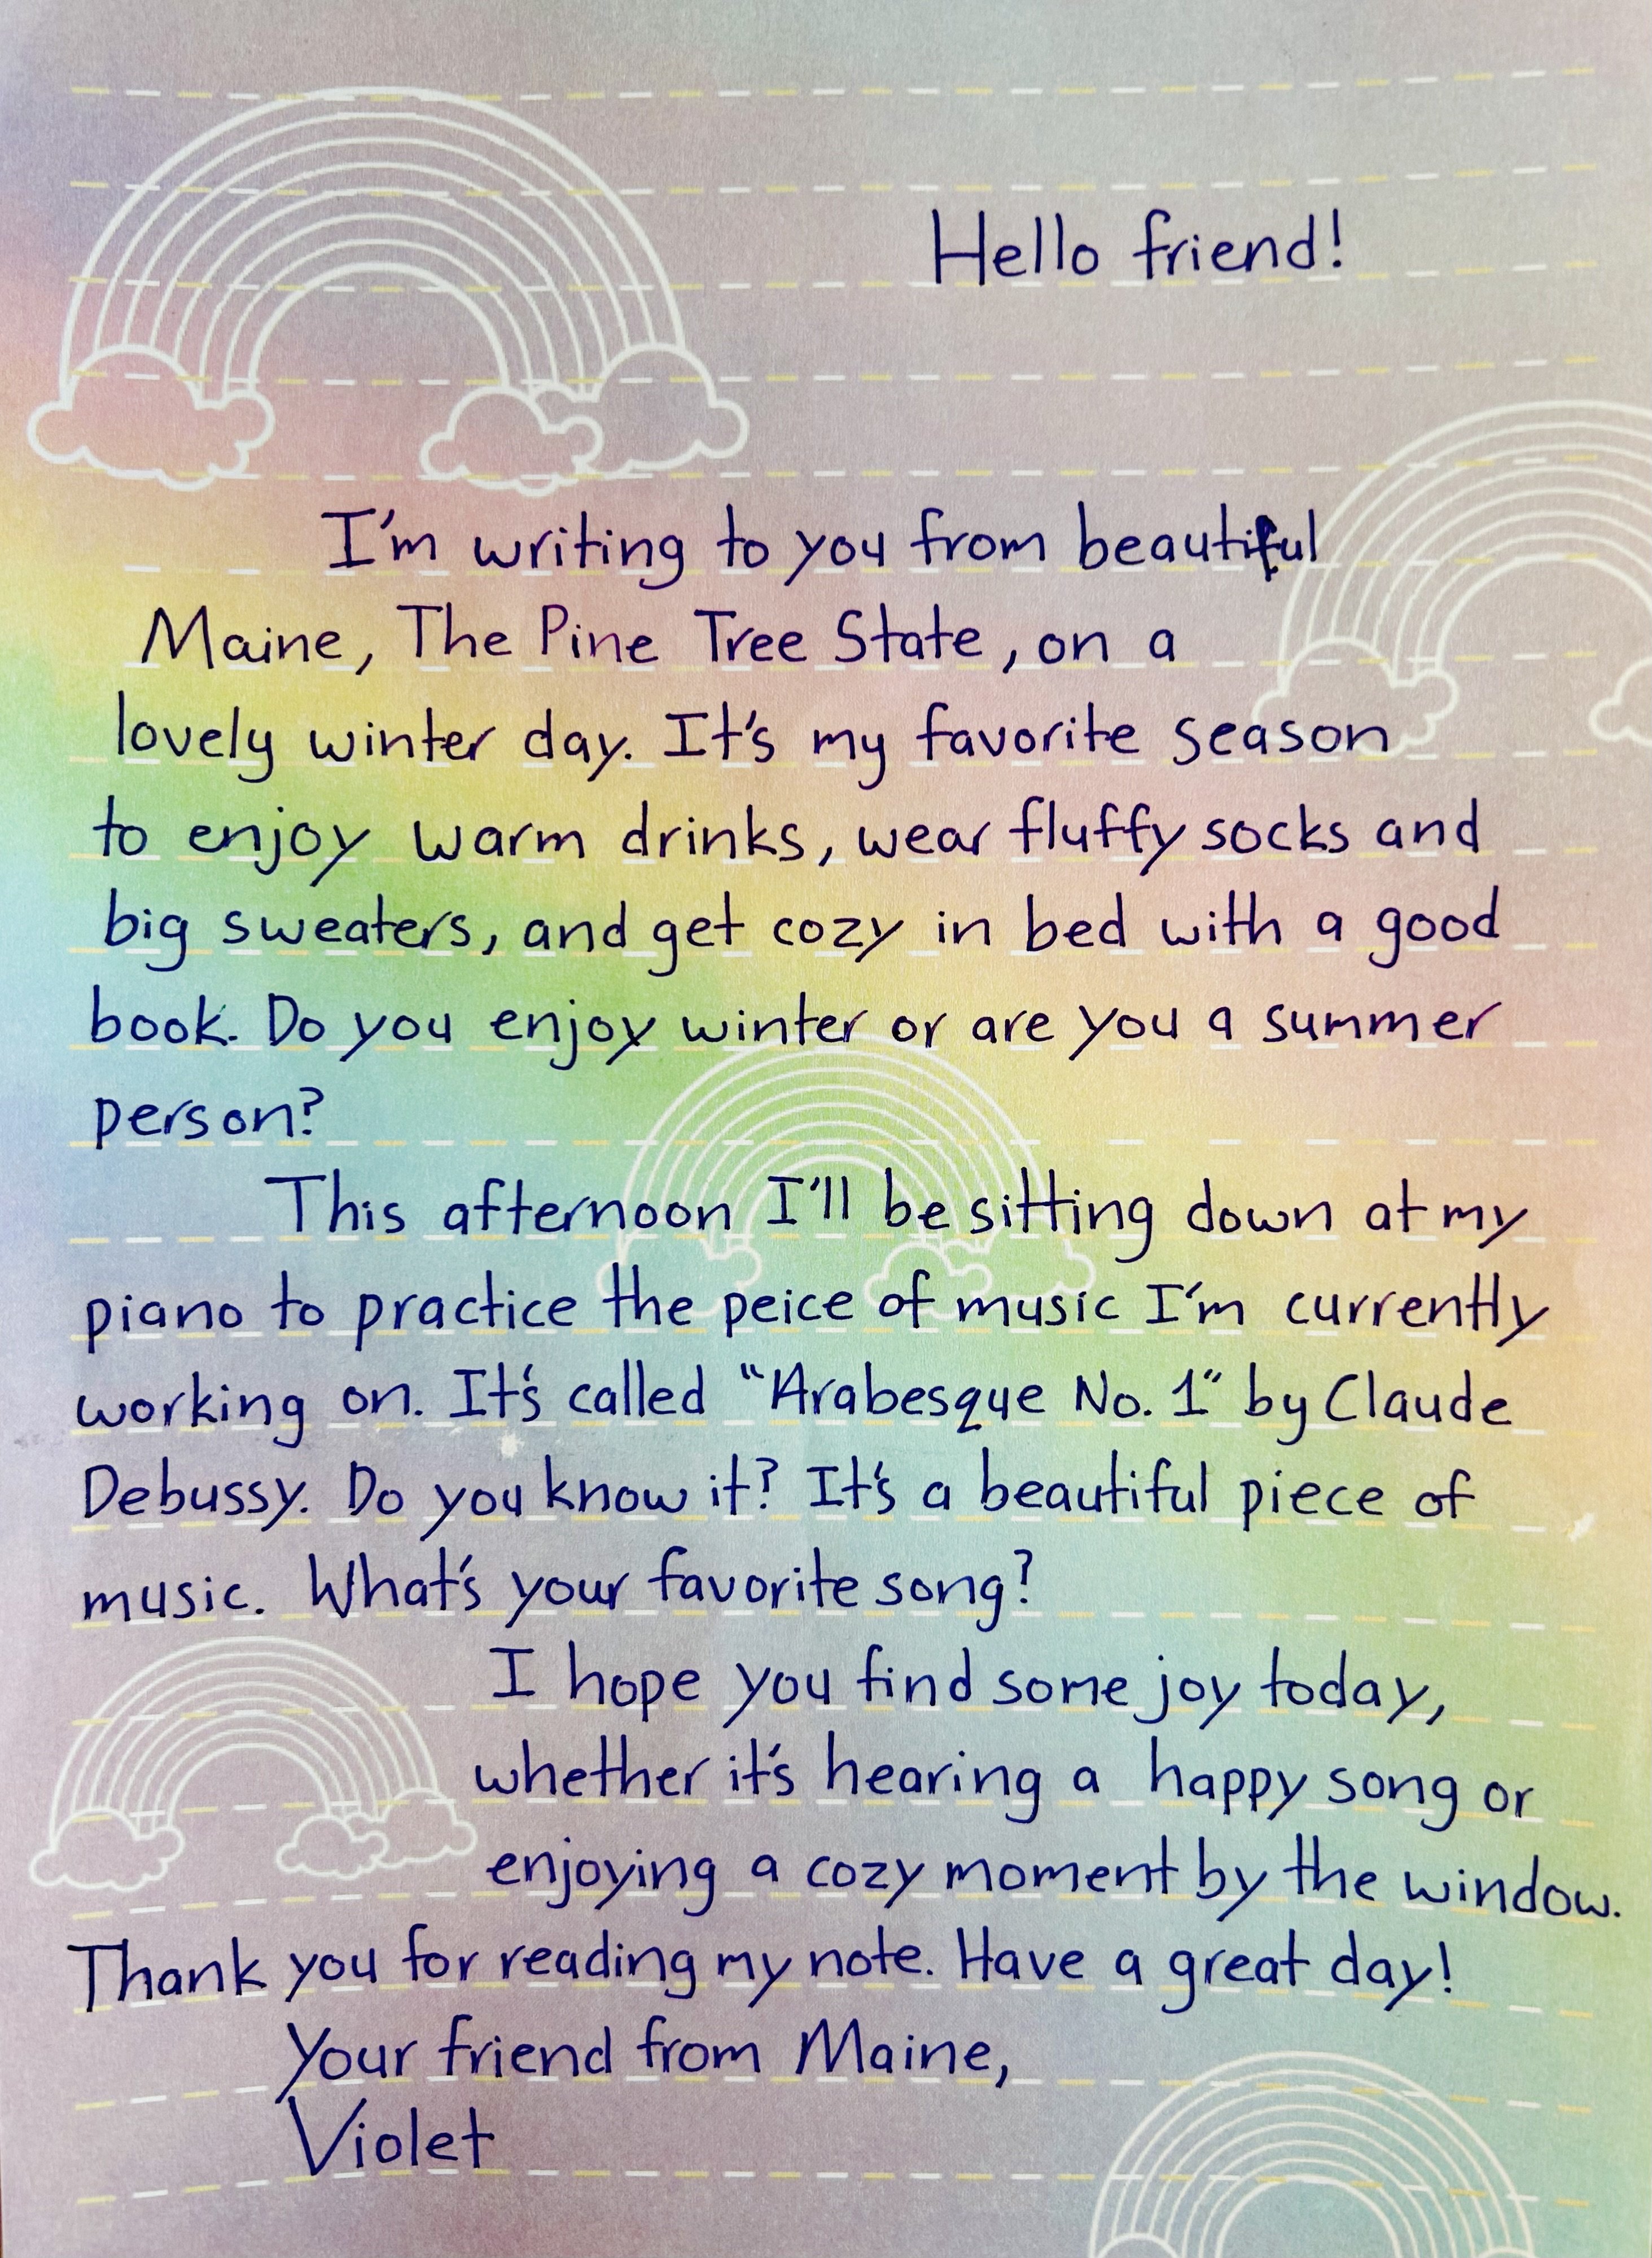 Hello friend!
I'm writing to you from beautiful
Maine, The Pine Tree State, on a
lovely winter day. It's my favorite season
to enjoy warm drinks, wear fluffy socks and
big sweaters, and get cozy in bed with a good
book. Do you enjoy winter or are you a summer
person?
This afternoon I'll be sitting down at my
piano to practice the peice of music I'm currently
working on. It's called "Arabesque No. 1" by Claude
Debussy. Do you know it? It's a beautiful piece of
music. What's your favorite song?
I hope you find some joy today,
whether it's hearing a happy song or
enjoying a cozy moment by the window.
Thank you for reading my note. Have a great day!
Your friend from Maine,
Violet